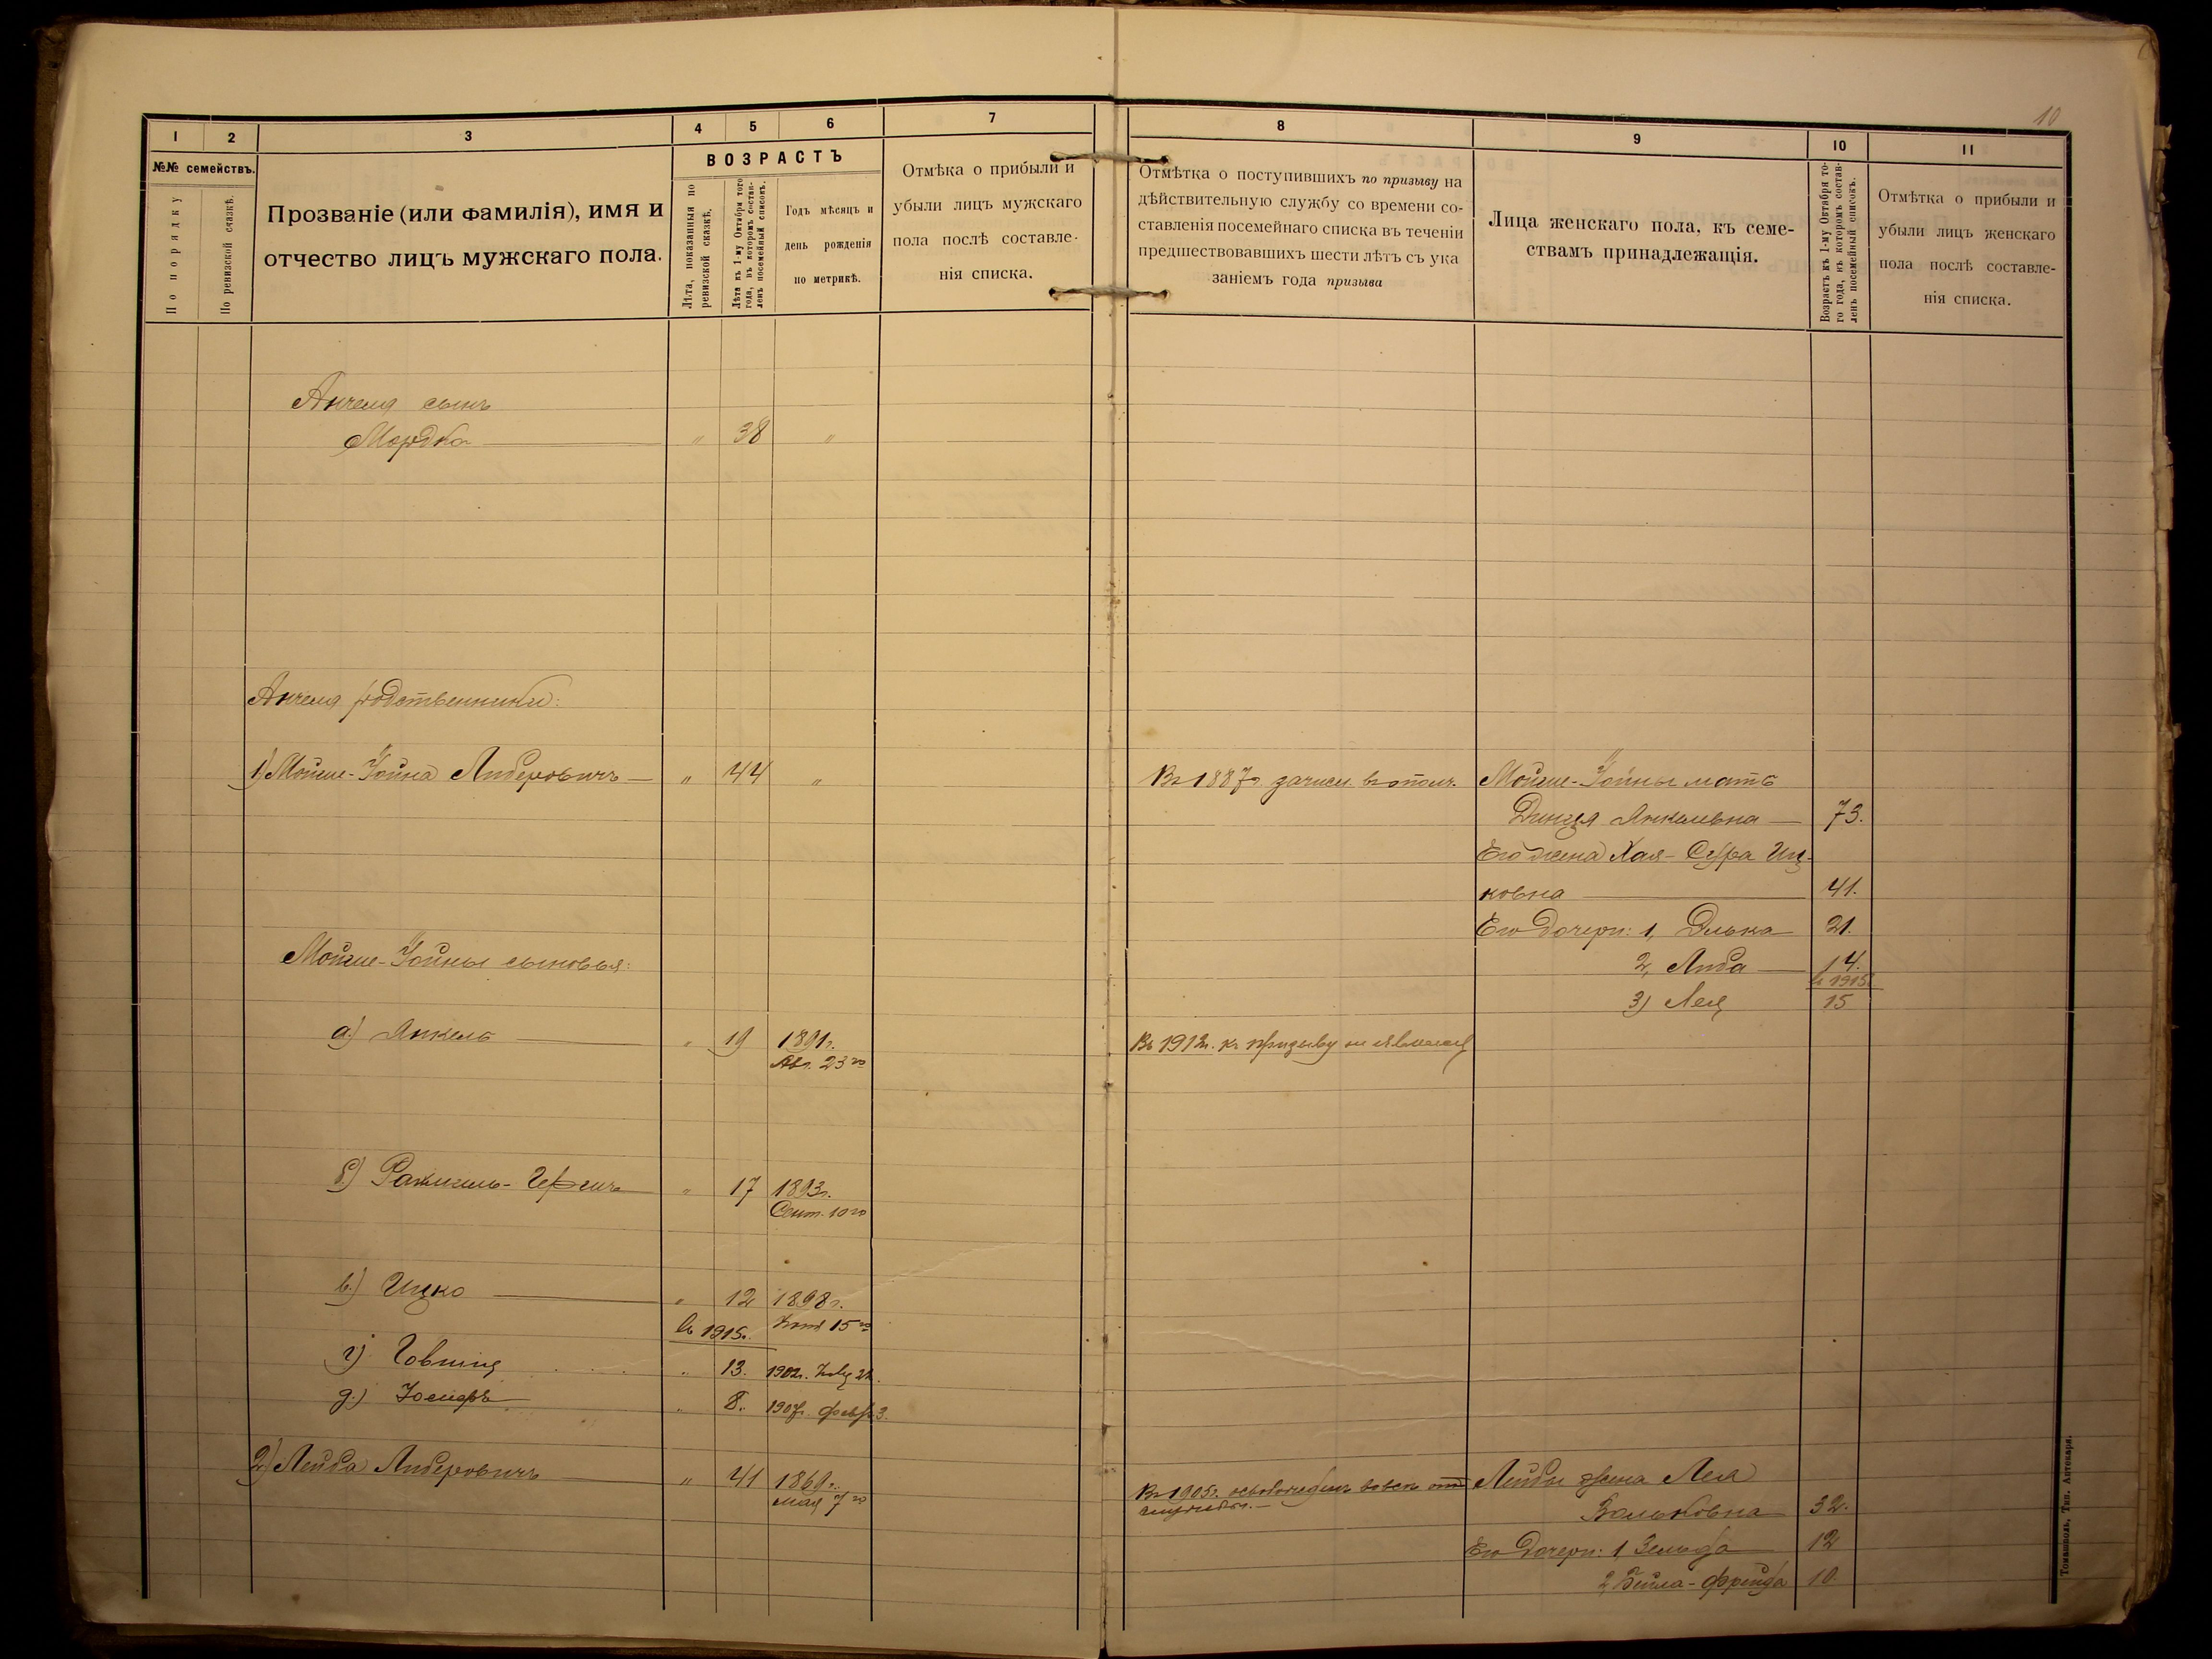 10
1 2 3 4 5 6 7
№№ семействъ.
По порядку
По ревизской сказкѣ.
Прозваніе (или фамилія), имя и
отчество лицъ мужскаго пола.
ВОЗРАСТЪ
Лѣта, показанныя по
ревизской сказкѣ.
Лѣта къ 1-му Октября того
года, въ которомъ состав-
ленъ посемейный списокъ.
Годъ мѣсяцъ и
день рожденія
по метрикѣ.
Отмѣка о прибыли и
убыли лицъ мужскаго
пола послѣ составле-
нія списка.
8 9 10 11
Отмѣтка о поступившихъ по призыву на
дѣйствительную службу со времени со-
ставленія посемейнаго списка въ теченіи
предшествовавшихъ шести лѣтъ съ ука
заніемъ года призыва
Лица женскаго пола, къ семе-
ствамъ принадлежащія.
Возрастъ къ 1-му Октября то-
го года, въ которомъ состав-
ленъ посемейный списокъ.
Отмѣтка о прибыли и
убыли лицъ женскаго
пола послѣ составле-
нія списка.
Анчеля сынъ
Мордко — " 38 "
Анчеля родственники:
1) Мойше-Іойна Лидеровичъ — " 44 "
Въ 1887 г. зачисл. въ ополч.
Мойше-Іойны мать
Янкелевна — 73.
Его жена Хая-Сура Иц-
ковна — 41.
Его дочери: 1, Элька — 21.
2, Либа — 14.
въ 1915 г.
3) Лея 15
Мойше-Іойны сыновья:
а) Янкель — " 19 1891 г.
Авг. 23 го
Въ 1912 г. къ призыву не явился
б) Рахмиль-Гершъ — " 17 1893 г.
Сент. 10 го
в.) Ицко — " 12 1898 г.
15 го
въ 1915 г.
г) Говшия " 13. 1902 г.
д.) Іосифъ " 8. 1907 г. февр. 3.
2) Лейба Лидеровичъ — " 41 1869 г.
мая 7 го
Въ 1905 г. освобожденъ вовсе отъ
службы. —
Лейбы жена Лея
Вольковна — 32.
Его дочери: 1, Зельда — 12
2, Бейла-Фрейда 10.
Томашполь, Тип. Аптекаря.